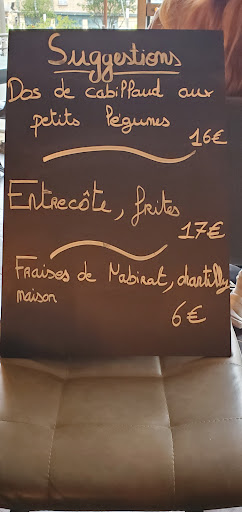 Suggestions
Dos de cabillaud aux
petits légumes
16€
Entrecôte, frites
17€
Fraises de Mabirat, chantilly
maison
6€